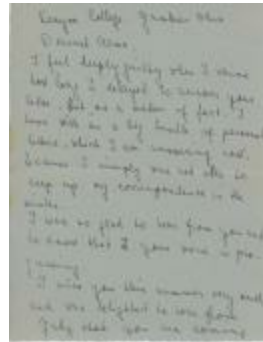 Kenyon College Gambier Ohio
Dearest
I feel deeply guilty when I
how long I delayed to answer your
letter. But as a matter of fact, I
have with me a big bundle of personal
letters which I am answering now,
because I simply was not able to
keep up my correspondence in the
I was so glad to hear from you and
to know that your work is pro-
I miss you this summer very much
and was delighted to hear from
that you are coming